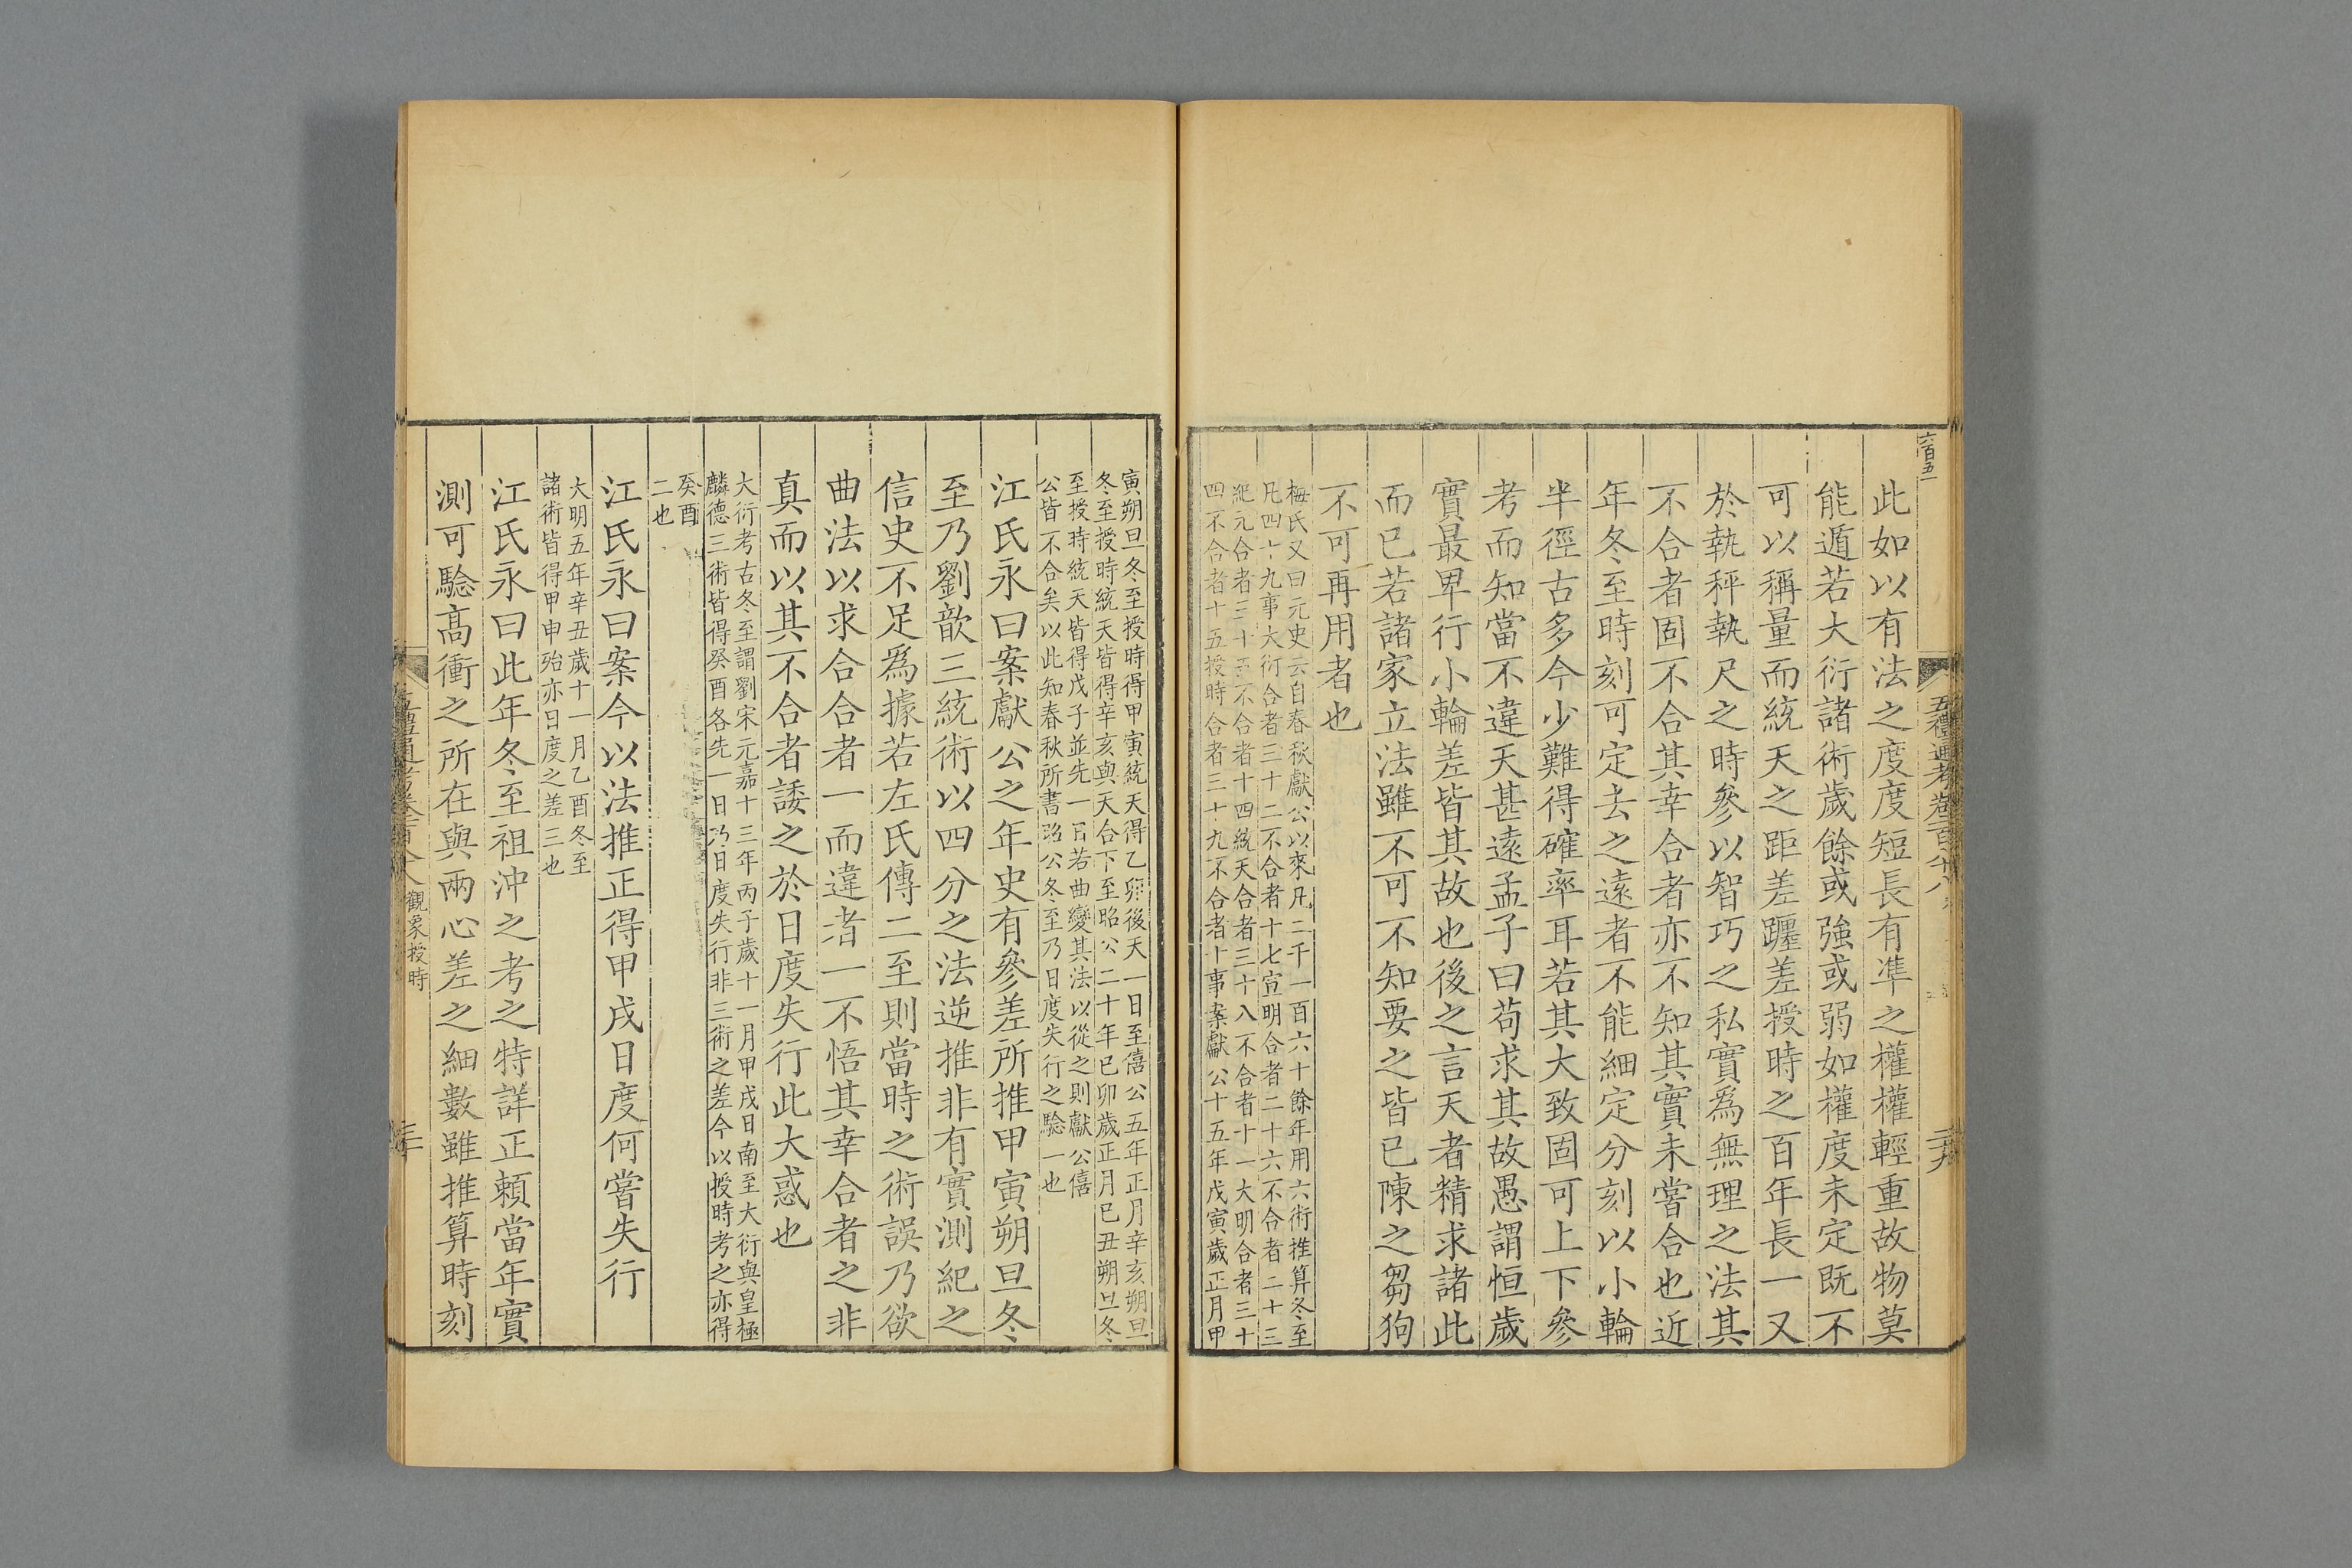 六百五
五禮通考卷一百八十八
二十九
此如以有法之度度短長有準之權權輕重故物莫
能遁若大衍諸術歲餘或強或弱如權度未定既不
可以稱量而統天之距差躔差授時之百年長一又
於執秤執尺之時參以智巧之私實爲無理之法其
不合者固不合其幸合者亦不知其實未嘗合也近
年冬至時刻可定去之遠者不能細定分刻以小輪
半徑古多今少難得確率耳若其大致固可上下參
考而知當不違天甚遠孟子曰苟求其故愚謂恒歲
實最卑行小輪差皆其故也後之言天者精求諸此
而已若諸家立法雖不可不知要之皆已陳之芻狗
不可再用者也
梅氏又曰元史云自春秋獻公以來凡二千一百六十餘年用六術推算冬至
凡四十九事大衍合者三十二不合者十七宣明合者二十六不合者二十三
紀元合者三十五不合者十四統天合者三十八不合者十一大明合者三十
四不合者十五授時合者三十九不合者十事案獻公十五年戊寅歲正月甲
寅朔旦冬至授時得甲寅統天得乙卯後天一日至僖公五年正月辛亥朔旦
冬至授時統天皆得辛亥與天合下至昭公二十年己卯歲正月己丑朔旦冬
至授時統天皆得戊子並先一日若曲變其法以從之則獻公僖
公皆不合矣以此知春秋所書昭公冬至乃日度失行之驗一也
江氏永曰案獻公之年史有參差所推甲寅朔旦冬
至乃劉歆三統術以四分之法逆推非有實測紀之
信史不足爲據若左氏傳二至則當時之術誤乃欲
曲法以求合合者一而違者一不悟其幸合者之非
真而以其不合者諉之於日度失行此大惑也
大衍考古冬至謂劉宋元嘉十三年丙子歲十一月甲戌日南至大衍與皇極
麟德三術皆得癸酉各先一日乃日度失行非三術之差今以授時考之亦得
癸酉
二也
江氏永曰案今以法推正得甲戌日度何嘗失行
大明五年辛丑歲十一月乙酉冬至
諸術皆得甲申殆亦日度之差三也
江氏永曰此年冬至祖沖之考之特詳正賴當年實
測可驗高衝之所在與兩心差之細數雖推算時刻
五禮通考卷一百八十八
觀象授時
三十